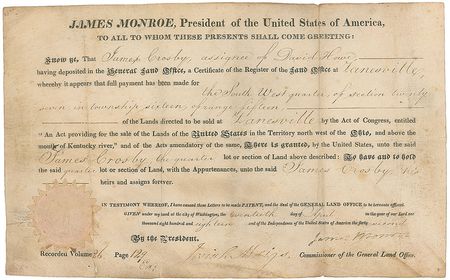 JAMES MONROE, President of the United States of America,
TO ALL TO WHOM THESE PRESENTS SHALL COME GREETING:
Know ye, That James Crosby, assignee of David Howe,
having deposited in the General Land Office, a Certificate of the Register of the Land Office at Zanesville,
whereby it appears that full payment has been made for the South West quarter, of section twenty
seven in township sixteen of range fifteen
of the Lands directed to be sold at Zanesville by the Act of Congress, entitled
"An Act providing for the sale of the Lands of the United States in the Territory north west of the Ohio, and above the
mouth of Kentucky river," and of the Acts amendatory of the same, There is granted, by the United States, unto the said
James Crosby the quarter lot or section of Land above described: To have and to hold
the said quarter lot or section of Land, with the Appurtenances, unto the said James Crosby his
heirs and assigns forever.
IN TESTIMONY WHEREOF, I have caused these Letters to be made PATENT, and the SEAL of the GENERAL LAND OFFICE to be hereunto affixed.
GIVEN under my hand at the City of Washington, the twentieth day of April in the year of our Lord
one thousand eight hundred and eighteen and of the Independence of the United States of America the forty second
By the President. James Monroe
Recorded Volume 26 Page 129 Josiah Meigs Commissioner of the General Land Office.